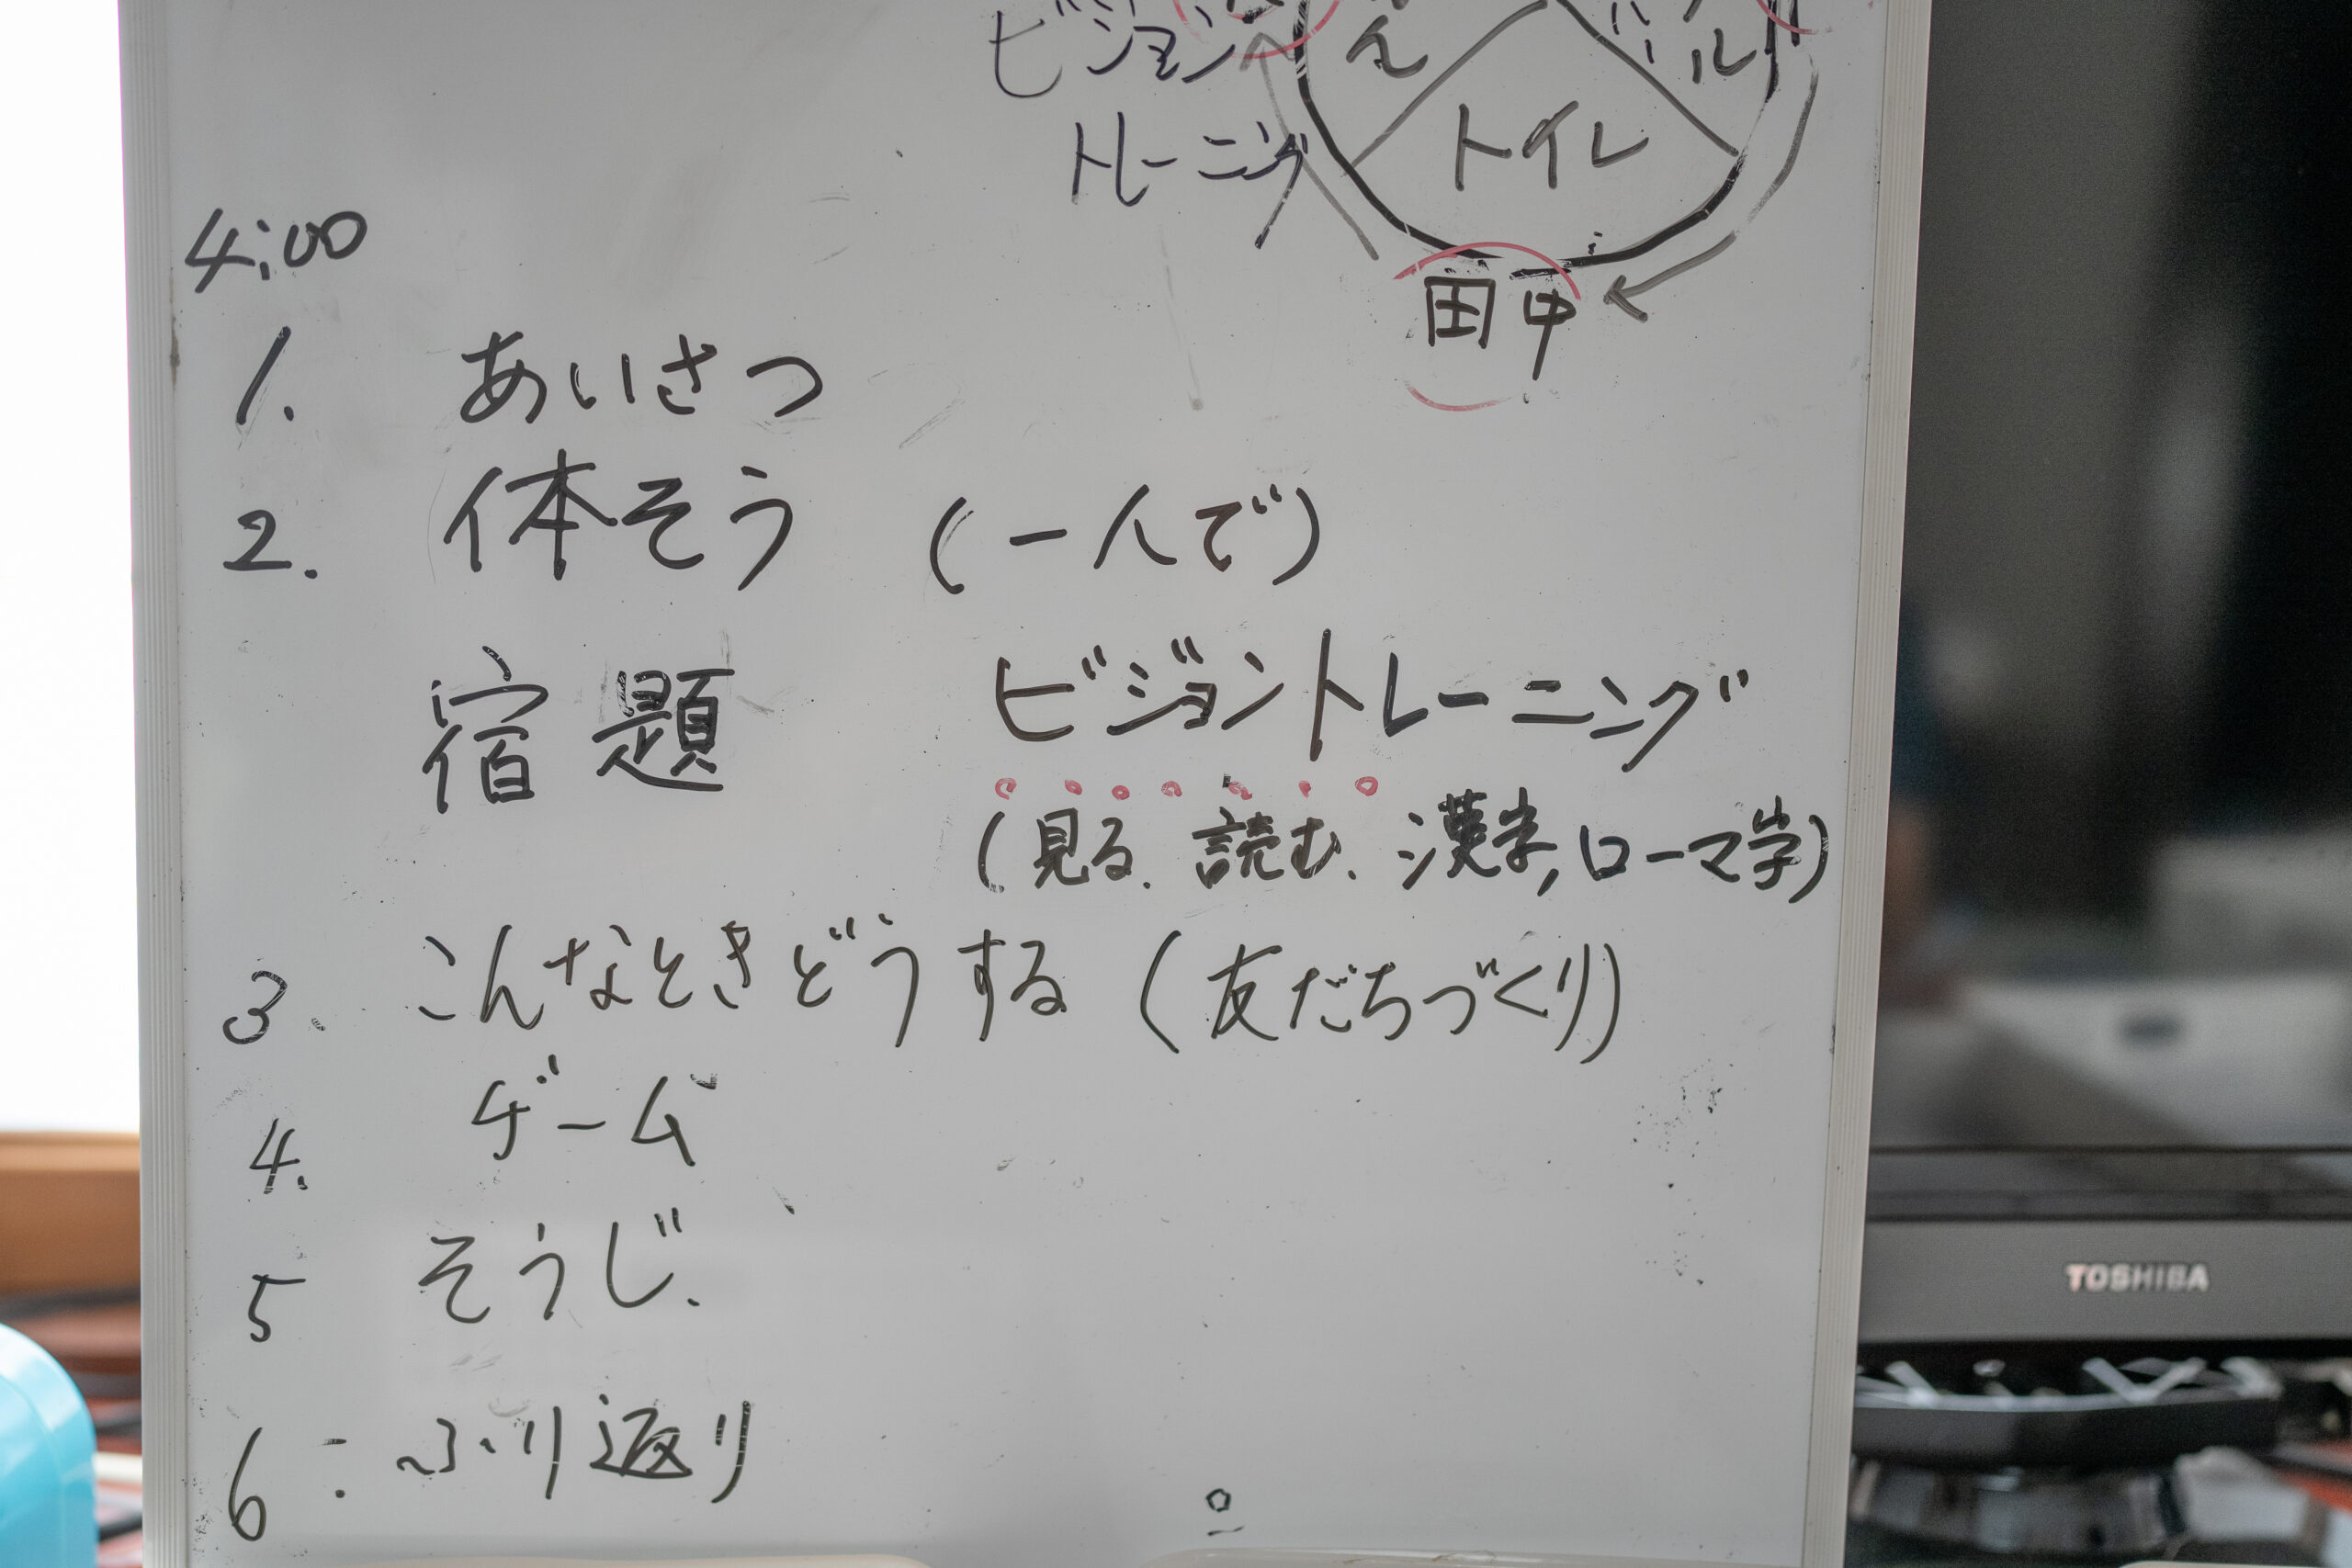 ビジョン
トレーニング
トイレ
田中
4:00
1. あいさつ
2. 体そう (一人で)
宿題 ビジョントレーニング
(見る、読む、漢字,ローマ字)
3. こんなときどうする (友だちづくり)
4. ゲーム
5 そうじ.
6: ふり返り
TOSHIBA